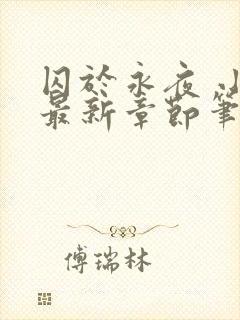 囚於永夜 小
最新章節筆
傅瑞林